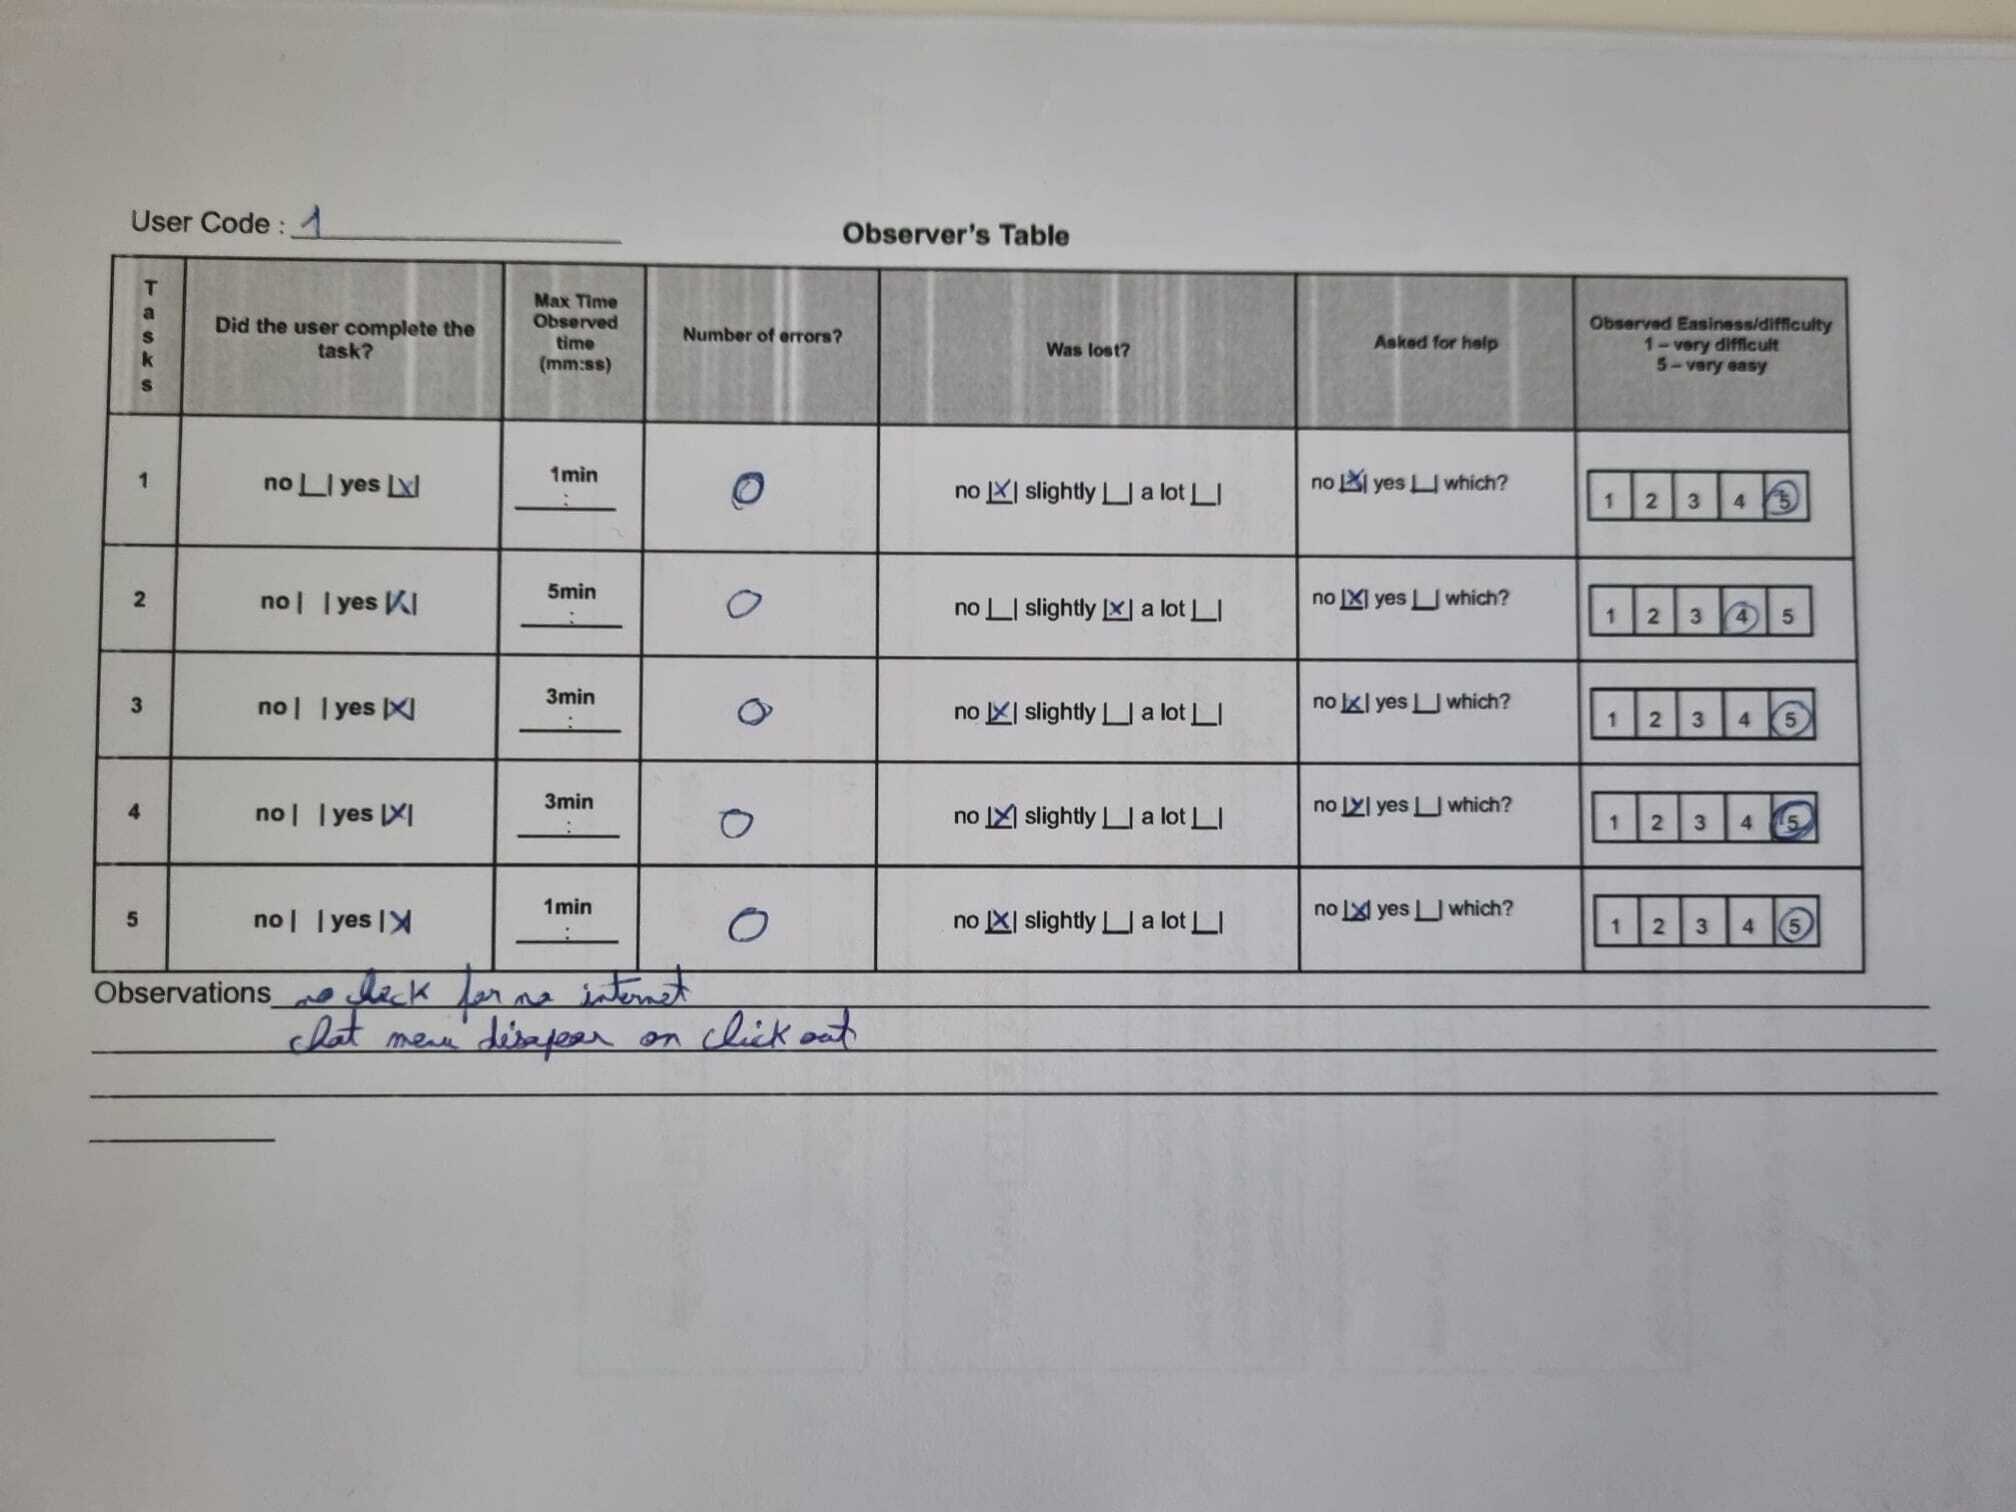 User Code : 1
Observer's Table
Tasks
Did the user complete the task?
Max Time Observed time (mm:ss)
Number of errors?
Was lost?
Asked for help
Observed Easiness/difficulty
1 – very difficult
5 – very easy
1 no |_| yes |x| 1min : 0 no |x| slightly |_| a lot |_| no |x| yes |_| which? 1 2 3 4 5
2 no | | yes |x| 5min : 0 no |_| slightly |x| a lot |_| no |x| yes |_| which? 1 2 3 4 5
3 no | | yes |x| 3min : 0 no |x| slightly |_| a lot |_| no |x| yes |_| which? 1 2 3 4 5
4 no | | yes |x| 3min : 0 no |x| slightly |_| a lot |_| no |x| yes |_| which? 1 2 3 4 5
5 no | | yes |x| 1min : 0 no |x| slightly |_| a lot |_| no |x| yes |_| which? 1 2 3 4 5
Observations no check for no internet
chat menu disapear on click out